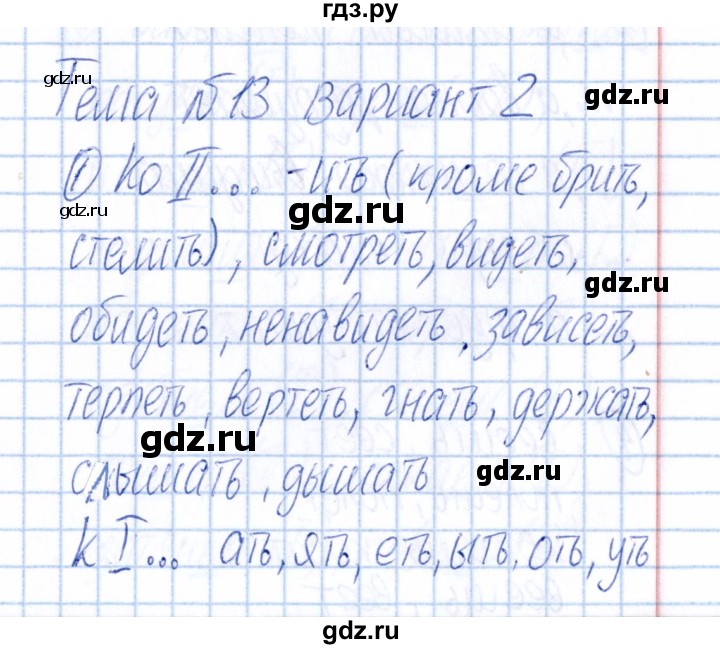 гдз.ру
Тема №13 вариант 2
① Ко II... -ить (кроме брить,
стелить), смотреть, видеть,
обидеть, ненавидеть, зависеть,
терпеть, вертеть, гнать, держать,
слышать, дышать
К I... ать, ять, еть, ыть, оть, уть
gdz.ru
gdz.ru
gdz.ru
gdz.ru
gdz.ru
gdz.ru
gdz.ru
gdz.ru
gdz.ru
gdz.ru